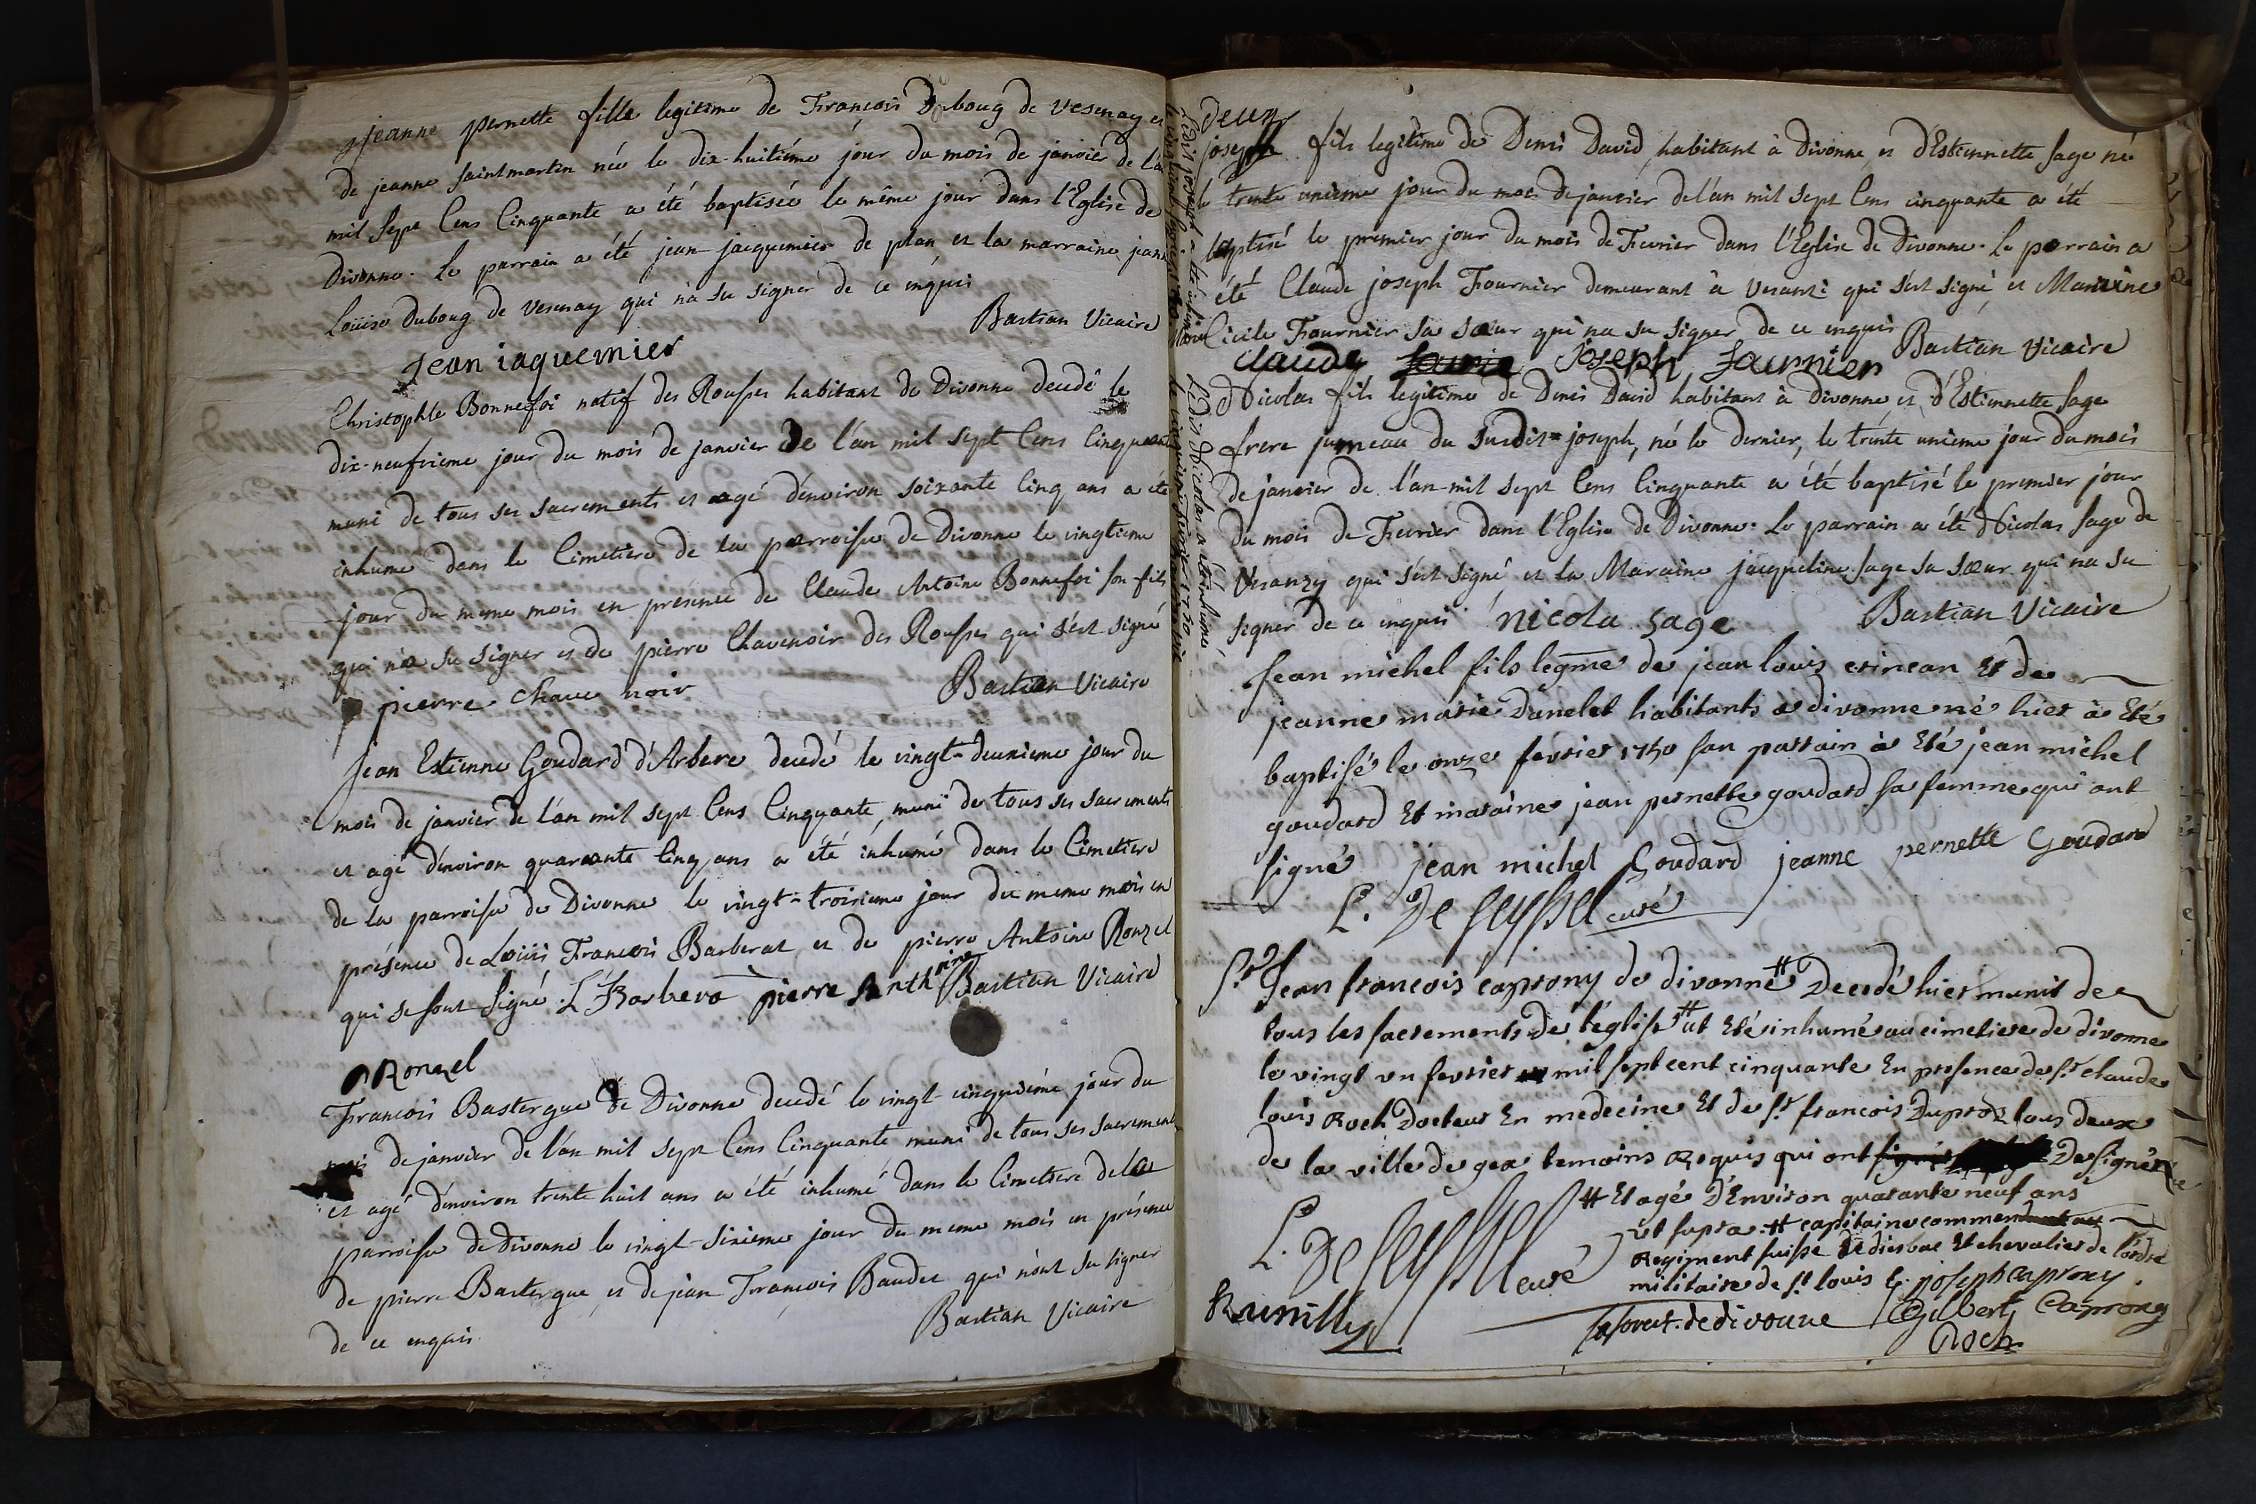 Jeanne pernette fille legitime de François Duboug de Vesenay et
de jeanne saintmartin née le dix-huitiéme jour du mois de janvier de l'an
mil sept Cens Cinquante a été baptisée le même jour dans l'Eglise de
Divonne. Le parrain a été jean jacquemier de plan et la marraine jeane
Loüise Duboug de Vesenay qui n'a su signer de ce enquis
Bastian Vicaire
Jean iaquemier
Christophle Bonnefoi natif des Rousses habitant de Divonne decedé le
dix-neufvieme jour du mois de janvier de l'an mil sept Cens Cinquante
muni de tous ses sacrements et agé d'environ soixante Cinq ans a été
inhumé dans le Cimetiere de la parroisse de Divonne le vingtieme
jour du meme mois en présence de Claude Antoine Bonnefoi son fils
qui n'a su signer et de pierre Chavenoir des Rousses qui s'est signé
pierre chave noir Bastian Vicaire
Jean Estienne Goudard d'Arbere decedé le vingt-deuxieme jour du
mois de janvier de l'an mil sept Cens Cinquante muni de tous ses sacrements
et agé d'environ quarante Cinq ans a été inhumé dans le Cimetiere
de la parroisse de Divonne le vingt-troisieme jour du meme mois en
présence de Loüis François Barberat et de pierre Antoine Ronzel
qui se sont signé L F Barbera pierre Anthoine Bastian Vicaire
Ronzel
François Bastergue de Divonne decedé le vingt-cinquiéme jour du
mois de janvier de l'an mil sept Cens Cinquante muni de tous ses sacrements
et agé d'environ trente huit ans a été inhumé dans le Cimetiere de la
parroisse de Divonne le vingt-sixieme jour du meme mois en présence
de pierre Bastergue et de jean François Baudet qui n'ont su signer
de ce enquis Bastian Vicaire
Ledit joseph a été inhumé
Ledit Nicolas a été inhumé
deux
joseph fils legitime de Denis David habitant à Divonne et d'Estiennette sage né
le trente unieme jour du mois de janvier de l'an mil sept Cens cinquante a été
baptisé le premier jour du mois de Fevrier dans l'Eglise de Divonne. Le parrain a
été Claude joseph Fournier demeurant à Vesanci qui s'est signé et Marraine
Cicile Fournier sa sœur qui na su signer de ce enquis Bastian Vicaire
Claude joseph fournier
Nicolas fils legitime de Denis David habitant à Divonne et d'Estiennette sage
frere jumeau du susdit joseph, né le dernier, le trente unieme jour du mois
de janvier de l'an mil sept Cens Cinquante a été baptisé le premier jour
du mois de Fevrier dans l'Eglise de Divonne. Le parrain a été Nicolas sage de
Vesanzy qui s'est signé et la Maraine jacqueline sage sa sœur qui na su
signer de ce enquis nicola sage Bastian Vicaire
Jean michel fils legme de jean louis et de
jeanne marie Danelet habitants a divonne né hier à Eté
baptisé le onze fevrier 1750 son parrain à Eté jean michel
goudard Et maraine jean pernette goudard sa femme qui ont
signé jean michel Goudard jeanne pernette Goudard
L. De Seyssel curé
Sr Jean francois caprony de divonne # Decedé hier munit de
tous les sacrements de l'église # at Eté inhumé au cimetiere de divonne
le vingt un fevrier mil sept cent cinquante En presence de sr claude
louis Roch Docteur En medecine Et de sr francois Duproz tous deux
de la ville de gex temoins Requis qui ont signés
# Et agé D'Environ quarante neuf ans
ut supra # capitaine commendant au
Regiment suisse de diesbac Et chevalier de l'ordre
militaire de st louis G. joseph caprony
L. De Seyssel curé
Rumilly
laforest de divonne Gilbert Caprony
Roch